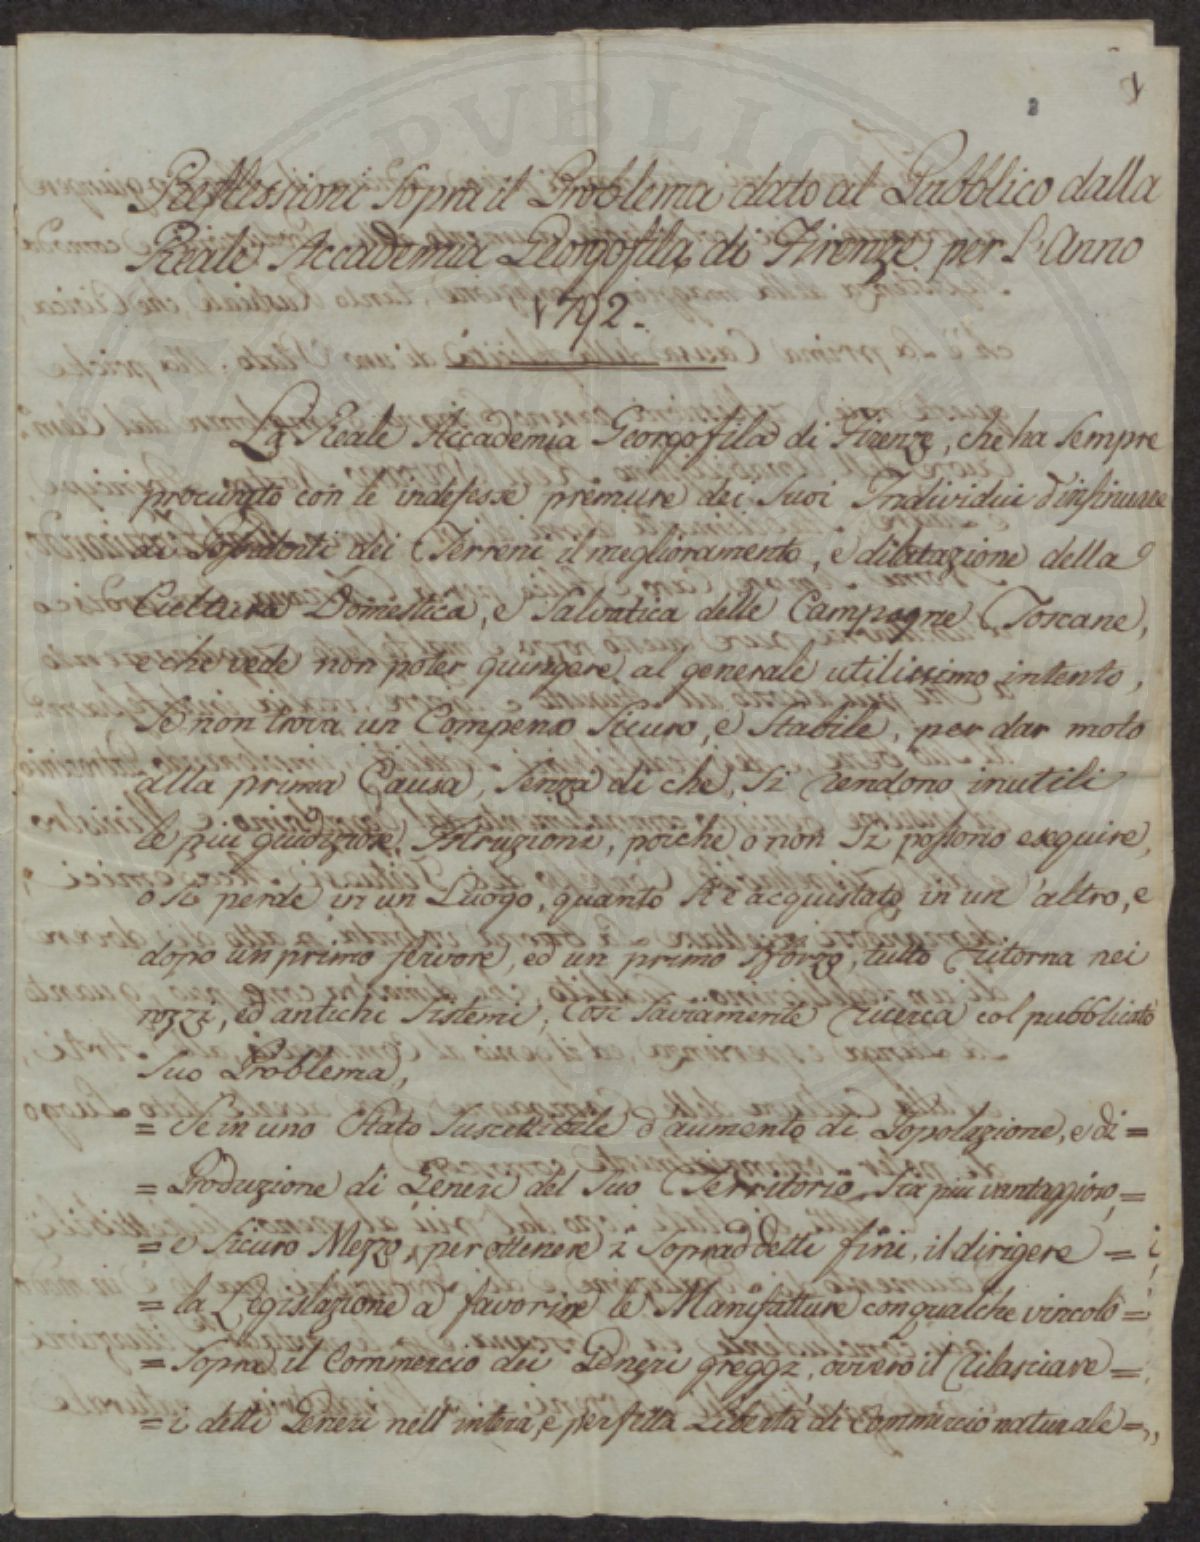 1
Reflessioni Sopra il Problema dato al Pubblico dalla
Reale Accademia Georgofila di Firenze per l'Anno
1792.
La Reale Accademia Georgofila di Firenze, che ha sempre
procurato con le indefesse premure dei Suoi Individui d'insinuare
ai Possidenti dei Terreni il meglioramento, e dilatazione della
Cultura Domestica, e Salvatica delle Campagne Toscane,
e che vede non poter giungere al generale utilissimo intento,
Se non trova un Compenso Sicuro, e Stabile, per dar moto
alla prima Causa, Senza di che, Si rendono inutili
le più giudiziose Istruzioni, poiche o non Si possono eseguire,
o Si perde in un Luogo, quanto Si è acquistato in un'altro, e
dopo un primo fervore, ed un primo Sforzo, tutto ritorna nei
rozzi, ed antichi Sistemi; Così Saviamente ricerca col pubblicato
Suo Problema,
= Se in uno Stato Suscettibile d'aumento di Popolazione, e di =
= Produzione di Generi del Suo Territorio Sia più vantaggioso, =
= e Sicuro Mezzo, per ottenere i Sopraddetti fini, il dirigere =
= la Legislazione a favorire le Manifatture con qualche vincolo =
= Sopra il Commercio dei Generi greggi, ovvero il rilasciare =
= i detti Generi nell'intera, e perfetta Libertà di Commercio naturale =,,
PVBLIC